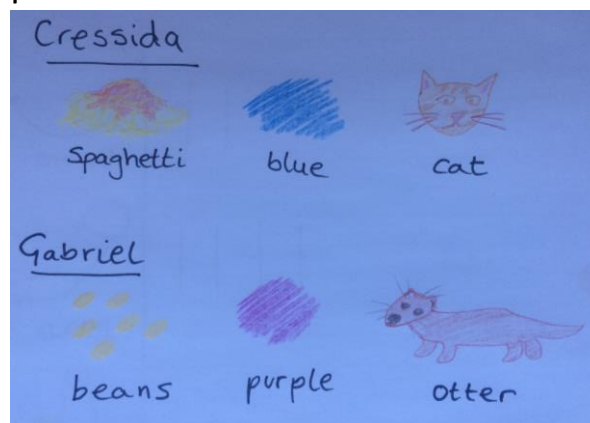 Cressida
Spaghetti blue cat
Gabriel
beans purple otter